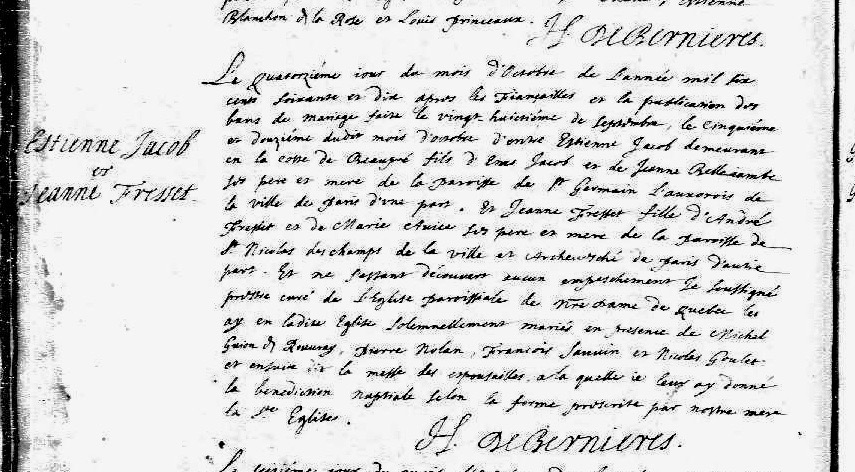 Blanchon dt la Rose et Louis princeaux.
H. DeBernieres.
Estienne Jacob
et
Jeanne Fresset
Le Quatorziéme iour du mois d'Octobre de L'année mil six
cents soixante et dix apres les fiançailles et la publication des
bans de mariage faite le vingt huitiéme de septembre, le cinquiéme
et douziéme dudit mois d'octobre d'entre Estienne Jacob demeurant
en la coste de Beaupré fils d'Emé Jacob et de Jeanne Bellejambe
ses pere et mere de la paroisse de St Germain L'auxerois de
la ville de paris d'une part. Et Jeanne Fresset fille d'André
Fresset et de Marie Avice ses pere et mere de la paroisse de
St Nicolas des champs de la ville et Archevesché de paris d'autre
part. Et ne s'estant découvert aucun empeschement Je soussigné
prestre curé de L'Eglise paroissiale de Nre Dame de Quebec les
ay en ladite Eglise solemnellement mariés en presence de Michel
Guion dt Rouvray, pierre Nolan, François Sauvin et Nicolas Goulet
et ensuite dit la messe des espousailles, a la quelle ie leur ay donné
la benediction nuptiale selon la forme prescrite par nostre mere
la Ste Eglise.
H. DeBernieres.